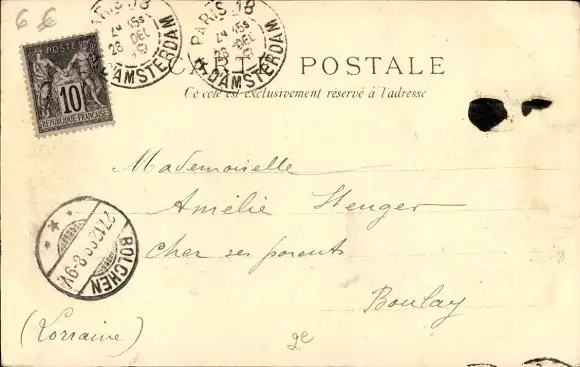 6 €
POSTE
10
RÉPUBLIQUE FRANÇAISE
PARIS 18
DEL
R. D'AMSTERDAM
PARIS 18
DEL
R. D'AMSTERDAM
CARTE POSTALE
Ce côté est exclusivement réservé à l'adresse
Mademoiselle
Amélie Stenger
Cher ses parents
Boulay
(Lorraine)
BOLCHEN